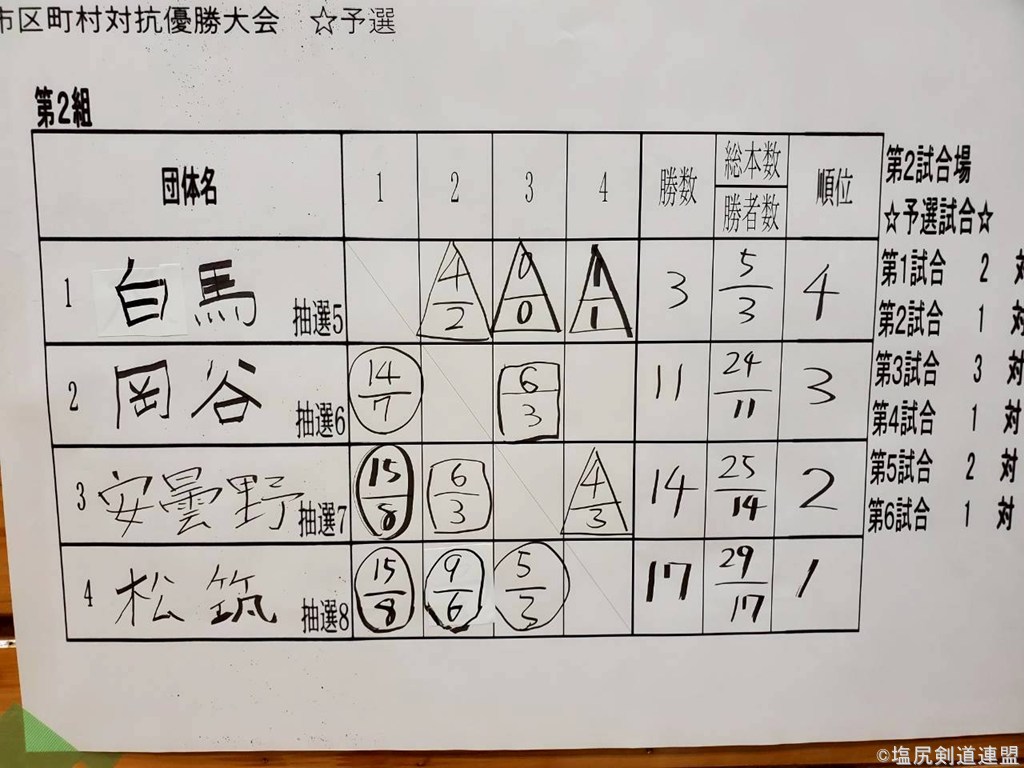 市区町村対抗優勝大会 ☆予選
第2組
団体名 1 2 3 4 勝数 総本数 勝者数 順位
1 白馬 抽選5 4/2 0/0 1/1 3 5/3 4
2 岡谷 抽選6 14/7 6/3 11 24/11 3
3 安曇野 抽選7 15/8 6/3 4/3 14 25/14 2
4 松筑 抽選8 15/8 9/6 5/3 17 29/17 1
第2試合場
☆予選試合☆
第1試合 2 対
第2試合 1 対
第3試合 3 対
第4試合 1 対
第5試合 2 対
第6試合 1 対
©塩尻剣道連盟